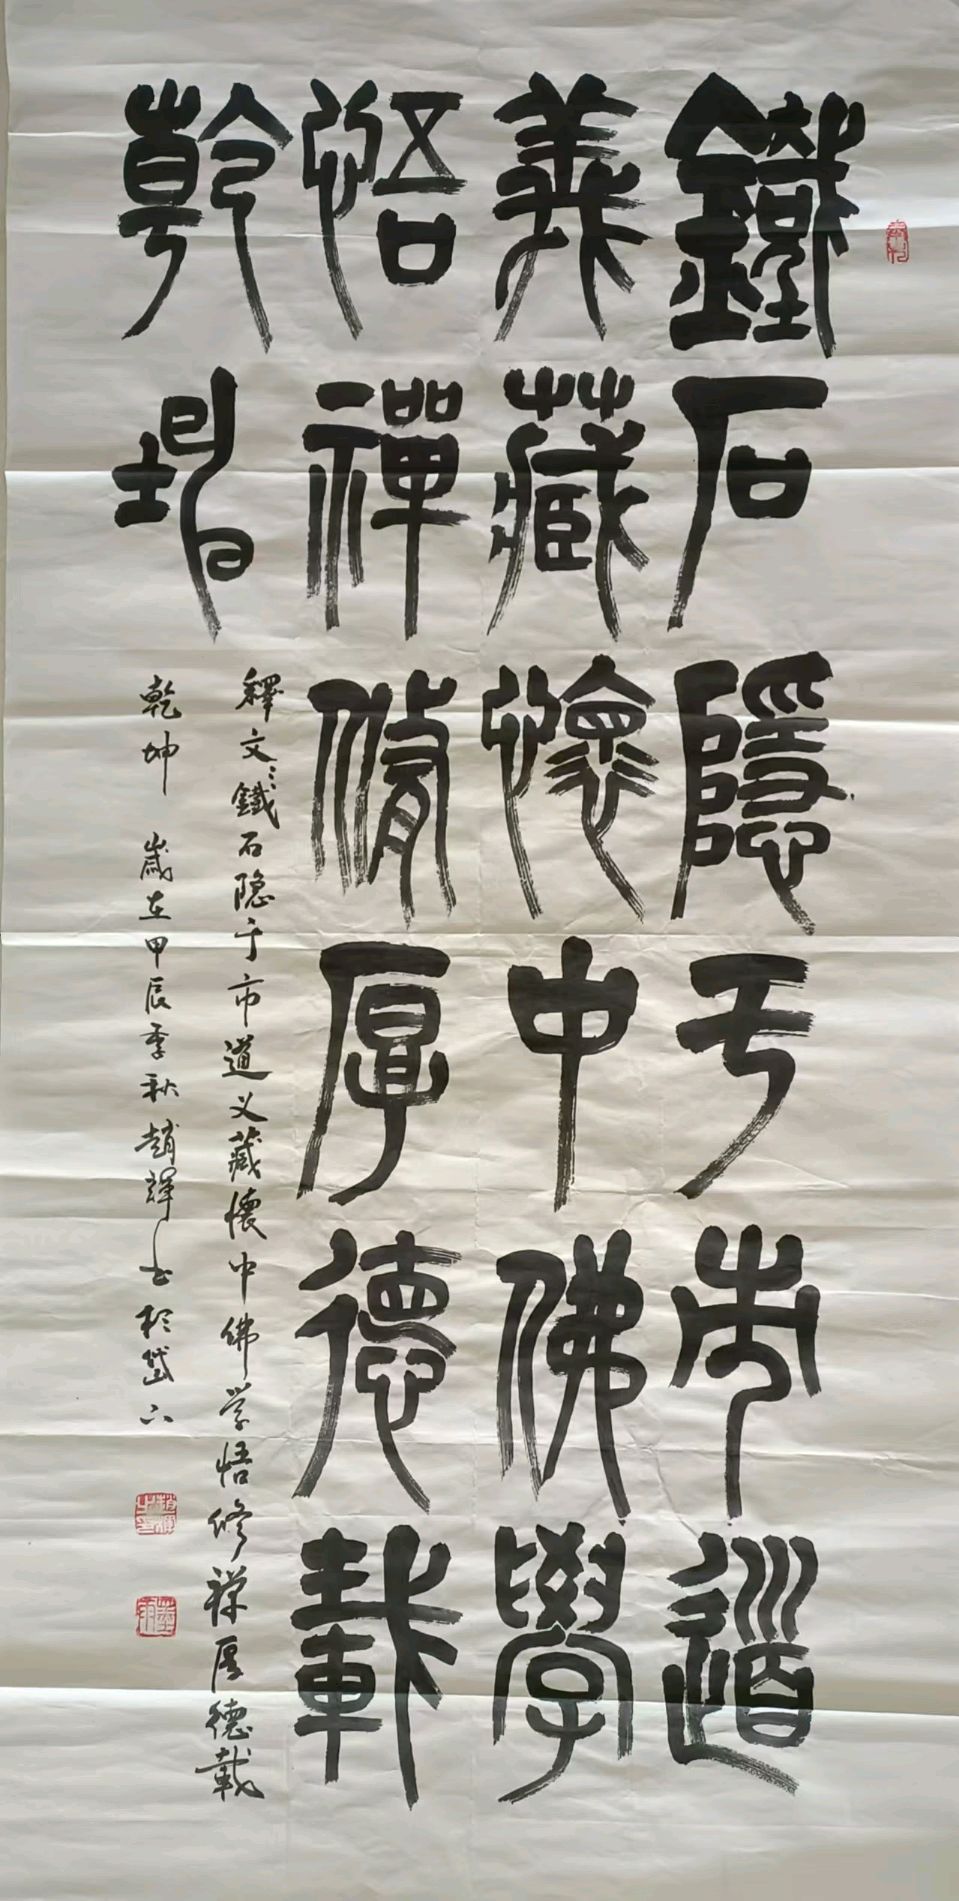 鐵石隱于市道
義藏懷中佛學
悟禪脩厚德載
乾坤
釋文：鐵石隐于市道义藏懷中佛学悟修禅厚德載
乾坤 歲在甲辰季秋趙輝书於岱下